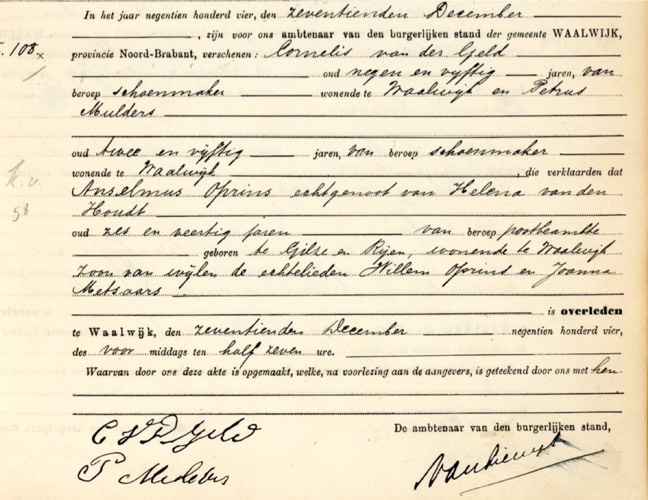 In het jaar negentien honderd vier, den zeventienden December
, zijn voor ons ambtenaar van den burgerlijken stand der gemeente WAALWIJK,
108
provincie Noord-Brabant, verschenen: Cornelis van der Geld
oud negen en vijftig jaren, van
beroep schoenmaker wonende te Waalwijk en Petrus
Mulders
oud twee en vijftig jaren, van beroep schoenmaker
wonende te Waalwijk , die verklaarden dat
K. v.
Anselmus Oprins echtgenoot van Helena van den
58
Houdt
oud zes en veertig jaren van beroep postbeambte
geboren te Gilze en Rijen, wonende te Waalwijk
zoon van wijlen de echtelieden Willem Oprins en Joanna
Metsaars
is overleden
te Waalwijk, den zeventienden December negentien honderd vier,
des voor middags ten half zeven ure.
Waarvan door ons deze akte is opgemaakt, welke, na voorlezing aan de aangevers, is geteekend door ons met hen.
De ambtenaar van den burgerlijken stand,
C V D Geld
P Mulders